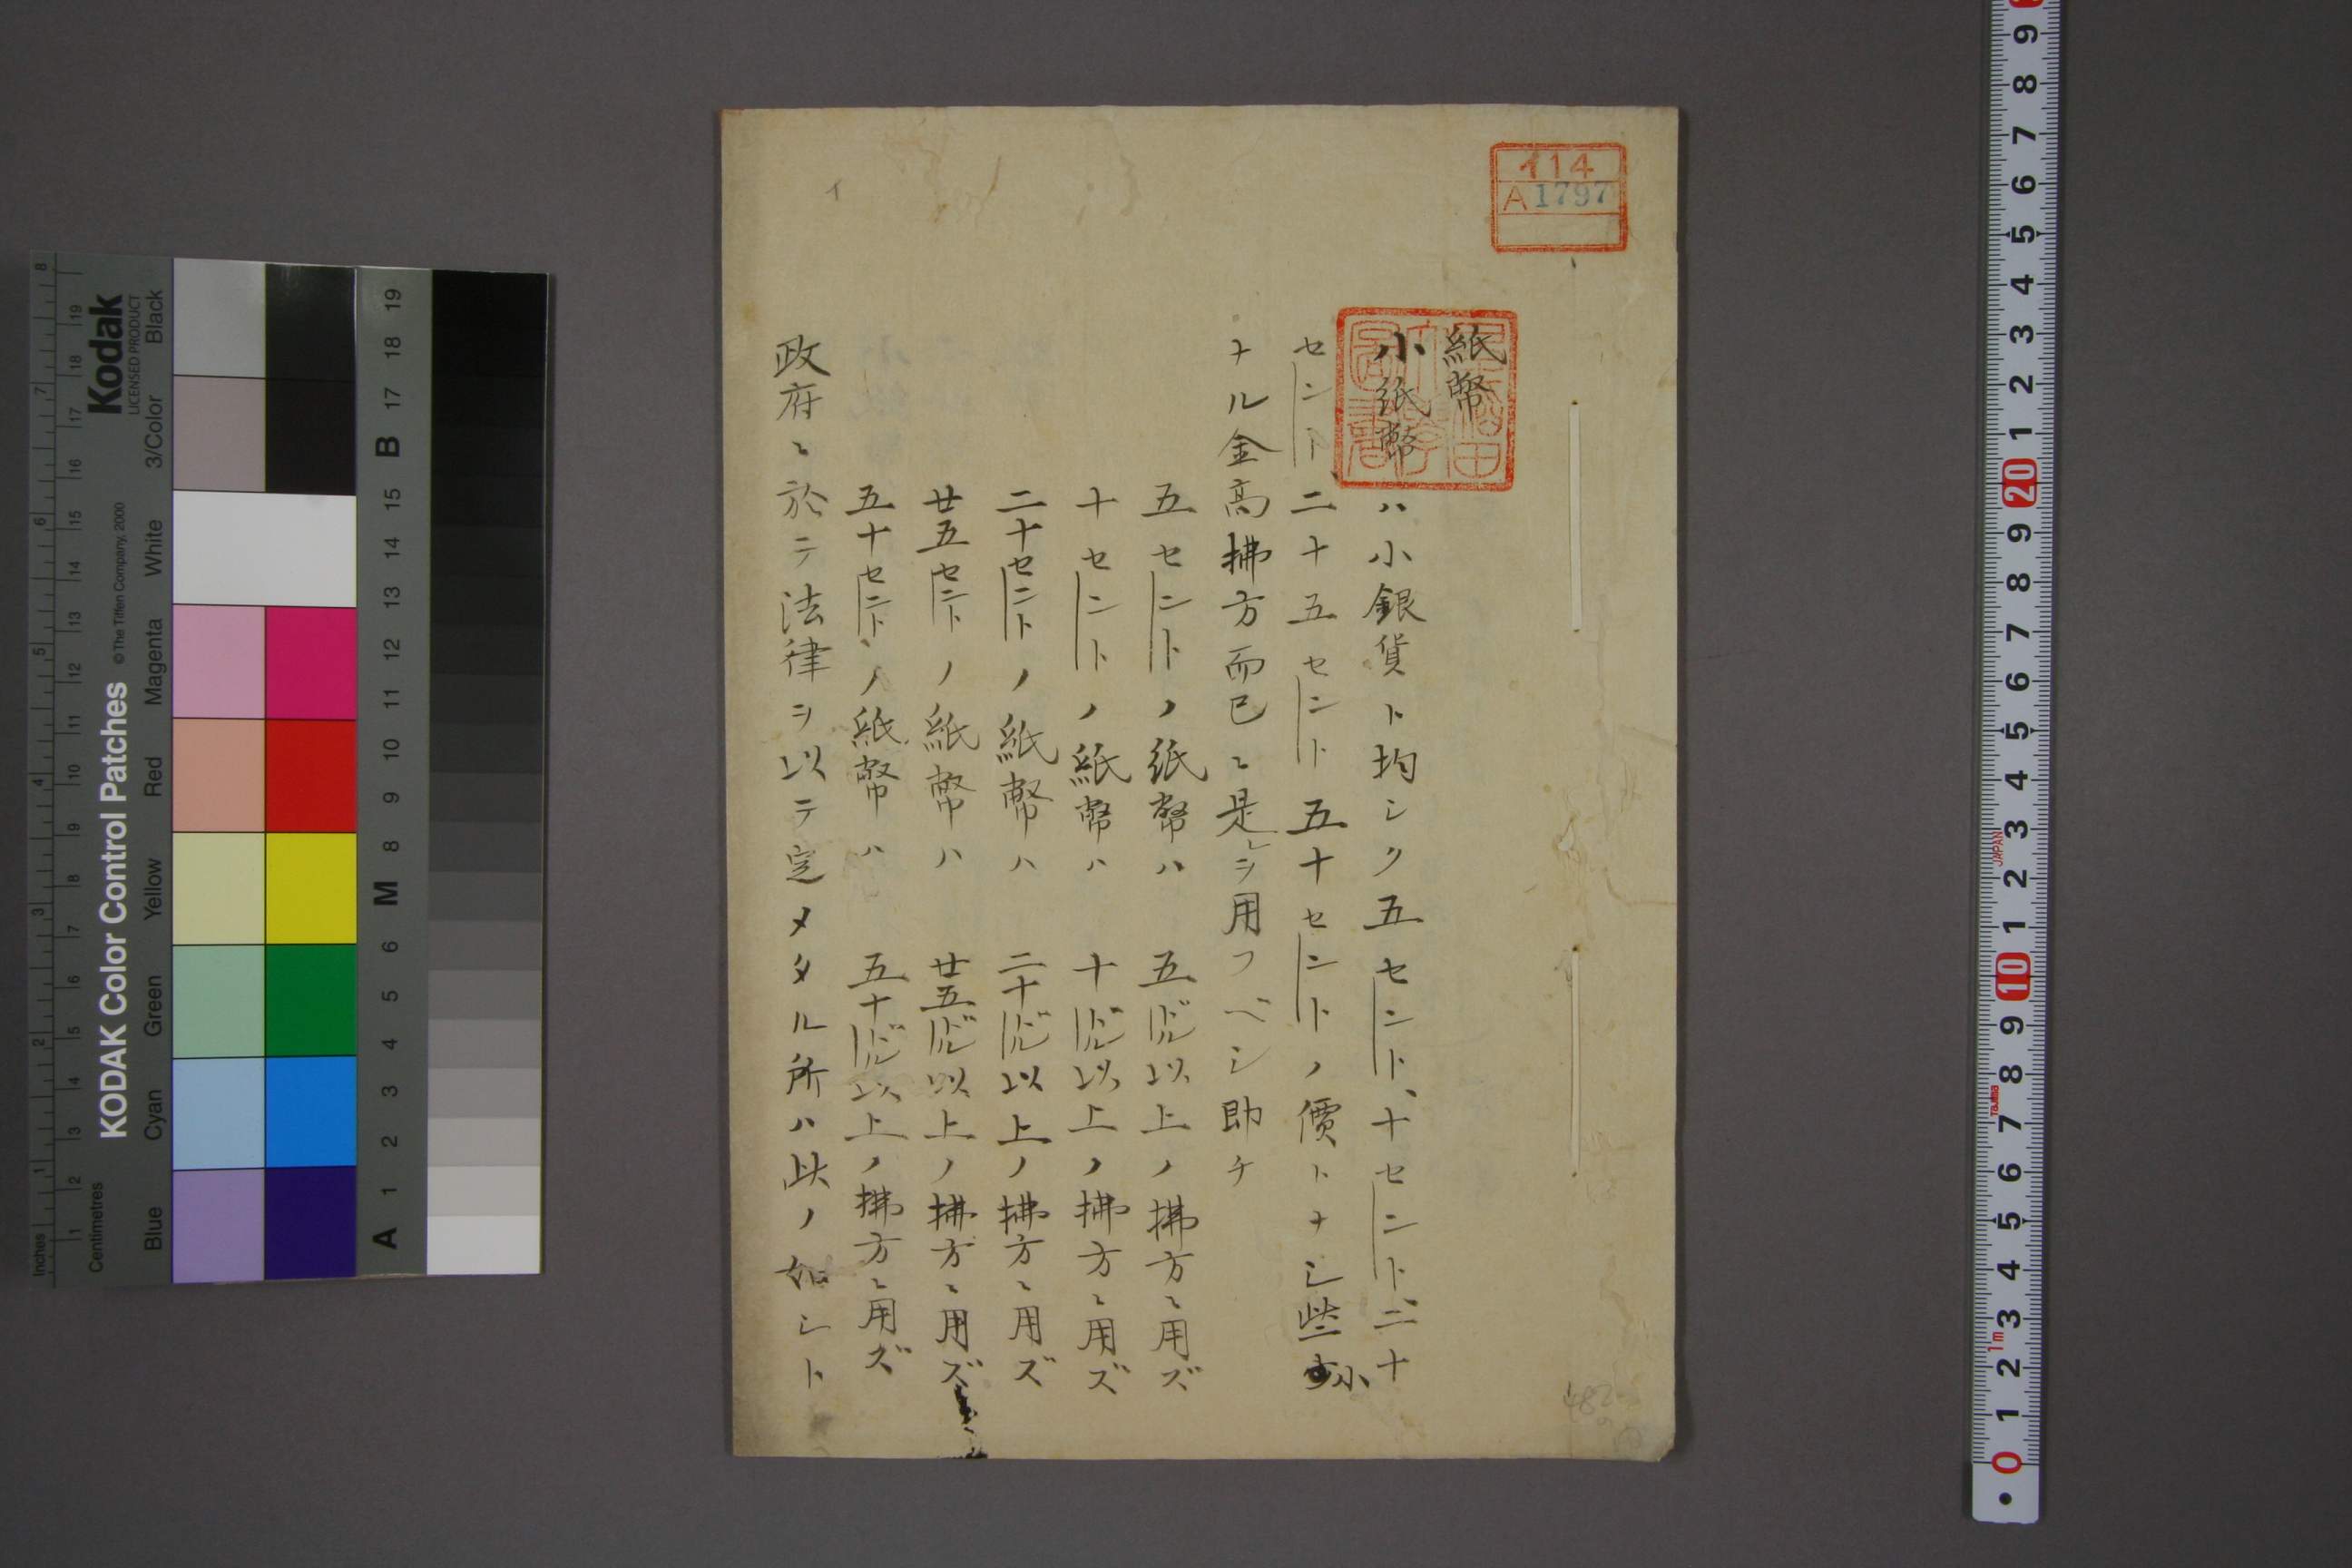 紙幣
小紙幣ハ小銀貨ト均シク五セント、十セント、二十
セント、二十五セント五十セントノ價トナシ些小
ナル金高拂方而已ニ是ヲ用フベシ即チ
五セントノ紙幣ハ 五ドル以上ノ拂方ニ用ズ
十セントノ紙幣ハ 十ドル以上ノ拂方ニ用ズ
二十セントノ紙幣ハ 二十ドル以上ノ拂方ニ用ズ
廿五セントノ紙幣ハ 廿五ドル以上ノ拂方ニ用ズ
五十セントノ紙幣ハ 五十ドル以上ノ拂方ニ用ズ
政府ニ於テ法律ヲ以テ定メタル所ハ此ノ如シト
イ14
A1797
Kodak
LICENSED PRODUCT
KODAK Color Control Patches
© The Tiffen Company, 2000
Inches
Centimetres
Blue Cyan Green Yellow Red Magenta White 3/Color Black
A 1 2 3 4 5 6 M 8 9 10 11 12 13 14 15 B 17 18 19
JAPAN
1m